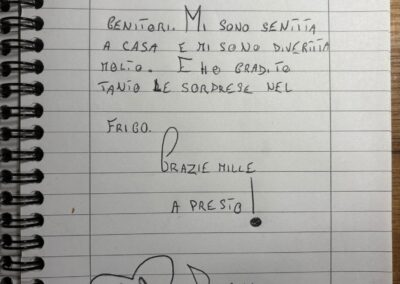 GENITORI. MI SONO SENTITA
A CASA E MI SONO DIVERTITA
MOLTO. E HO GRADITO
TANTO LE SORPRESE NEL
FRIGO.
GRAZIE MILLE
A PRESTO!